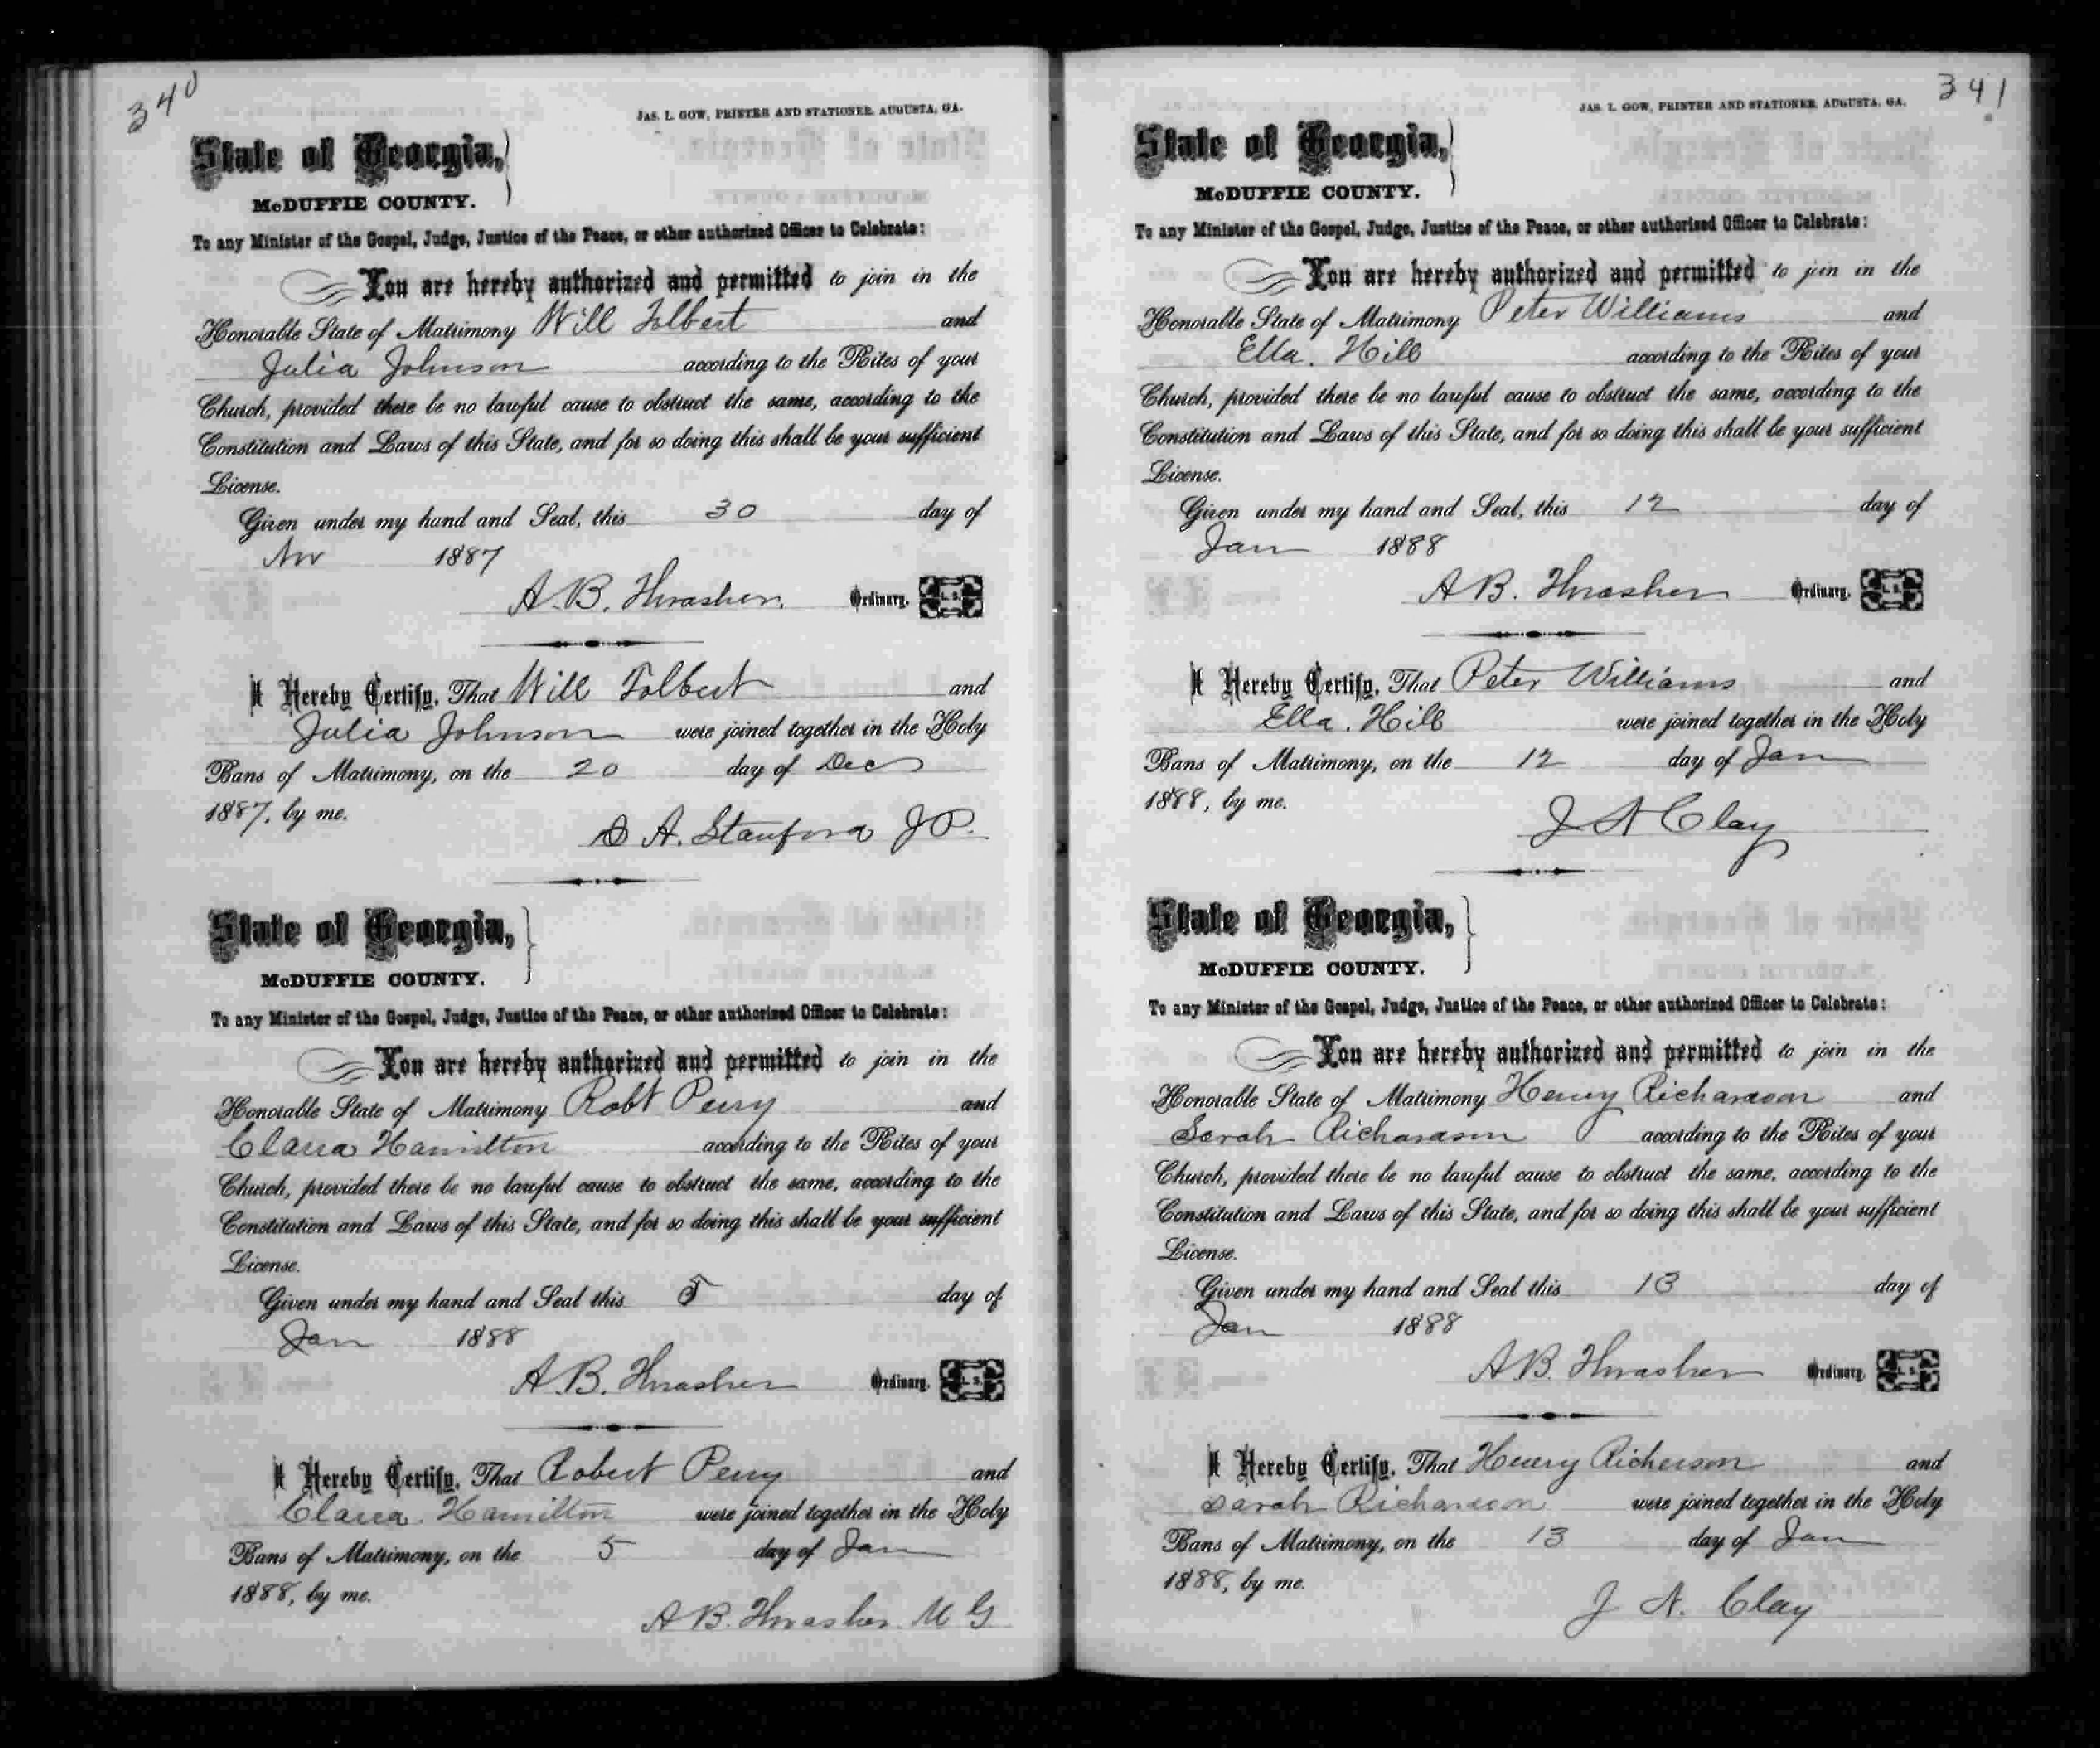 340
JAS. L. GOW, PRINTER AND STATIONER, AUGUSTA, GA.
State of Georgia,
McDUFFIE COUNTY.
To any Minister of the Gospel, Judge, Justice of the Peace, or other authorized Officer to Celebrate:
You are hereby authorized and permitted to join in the
Honorable State of Matrimony Will Tolbert and
Julia Johnson according to the Rites of your
Church, provided there be no lawful cause to obstruct the same, according to the
Constitution and Laws of this State, and for so doing this shall be your sufficient
License.
Given under my hand and Seal, this 30 day of
Nov 1887
A. B. Thrasher, Ordinary. L. S.
I Hereby Certify, That Will Tolbert and
Julia Johnson were joined together in the Holy
Bans of Matrimony, on the 20 day of Dec
1887, by me.
A. Stanford J P.
State of Georgia,
McDUFFIE COUNTY.
To any Minister of the Gospel, Judge, Justice of the Peace, or other authorized Officer to Celebrate:
You are hereby authorized and permitted to join in the
Honorable State of Matrimony Robt Perry and
Clarra Hamilton according to the Rites of your
Church, provided there be no lawful cause to obstruct the same, according to the
Constitution and Laws of this State, and for so doing this shall be your sufficient
License.
Given under my hand and Seal this 5 day of
Jan 1888
A. B. Thrasher Ordinary. L. S.
I Hereby Certify, That Robert Perry and
Clarra Hamilton were joined together in the Holy
Bans of Matrimony, on the 5 day of Jan
1888, by me.
A B. Thrasher M G
341
JAS. L. GOW, PRINTER AND STATIONER, AUGUSTA, GA.
State of Georgia,
McDUFFIE COUNTY.
To any Minister of the Gospel, Judge, Justice of the Peace, or other authorized Officer to Celebrate:
You are hereby authorized and permitted to join in the
Honorable State of Matrimony Peter Williams and
Ella. Hill according to the Rites of your
Church, provided there be no lawful cause to obstruct the same, according to the
Constitution and Laws of this State, and for so doing this shall be your sufficient
License.
Given under my hand and Seal, this 12 day of
Jan 1888
A B. Thrasher Ordinary. L. S.
I Hereby Certify, That Peter Williams and
Ella. Hill were joined together in the Holy
Bans of Matrimony, on the 12 day of Jan
1888, by me.
J N Clay
State of Georgia,
McDUFFIE COUNTY.
To any Minister of the Gospel, Judge, Justice of the Peace, or other authorized Officer to Celebrate:
You are hereby authorized and permitted to join in the
Honorable State of Matrimony Henry Richardson and
Sarah Richardson according to the Rites of your
Church, provided there be no lawful cause to obstruct the same, according to the
Constitution and Laws of this State, and for so doing this shall be your sufficient
License.
Given under my hand and Seal this 13 day of
Jan 1888
A B. Thrasher Ordinary. L. S.
I Hereby Certify, That Henry Richerson and
Sarah Richardson were joined together in the Holy
Bans of Matrimony, on the 13 day of Jan
1888, by me.
J N. Clay